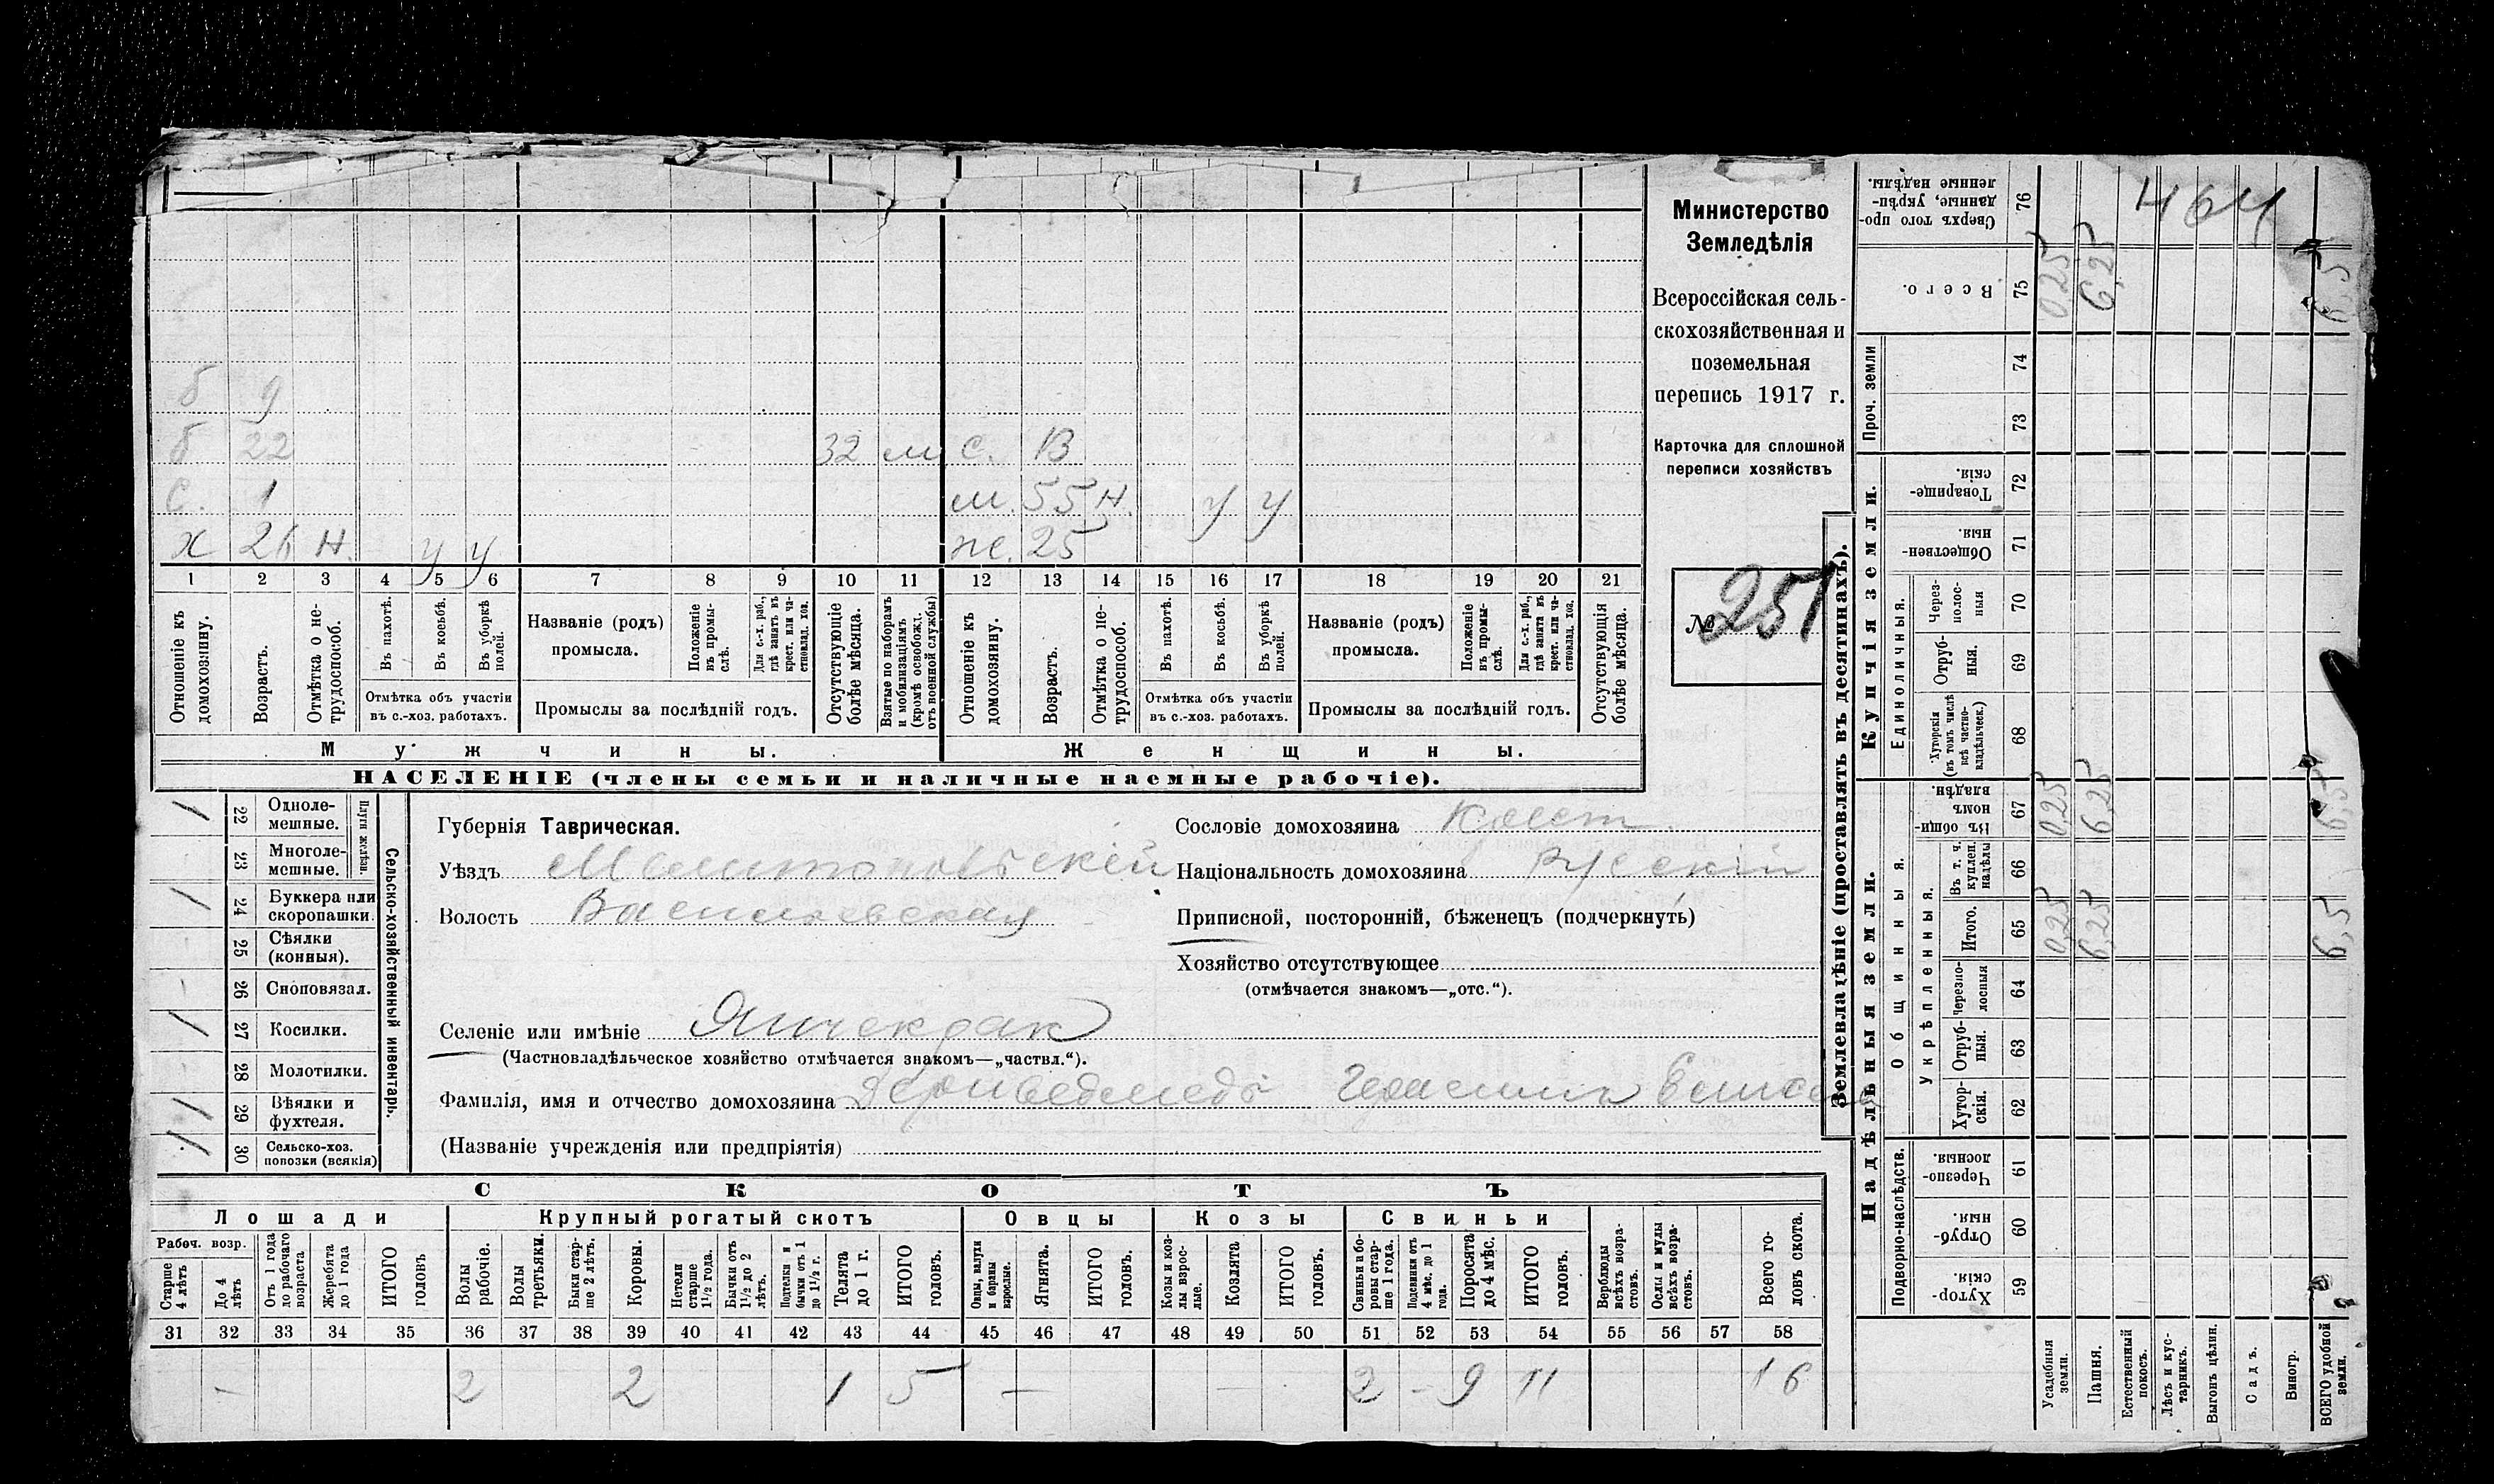 464
Министерство
Земледѣлія
Всероссійская сель-
скохозяйственная и
поземельная
перепись 1917 г.
Карточка для сплошной
переписи хозяйствъ
№ 251
б 9
б 22 32 м с. 13
с. 1 м. 55 н. у у
х н. у у ж. 25
1 2 3 4 5 6 7 8 9 10 11 12 13 14 15 16 17 18 19 20 21
Отношеніе къ домохозяину.
Возрастъ.
Отмѣтка о не-трудоспособ.
Въ пахотѣ.
Въ косьбѣ.
Въ уборкѣ полей.
Отмѣтка объ участіи въ с.-хоз. работахъ.
Названіе (родъ) промысла.
Положеніе въ промы-слѣ.
Для с.-х. раб., гдѣ занятъ въ крест. или ча-стновлад. хоз.
Промыслы за послѣдній годъ.
Отсутствующіе болѣе мѣсяца.
Взятые по наборамъ и мобилизаціямъ (кромѣ освобожд. отъ военной службы)
Отношеніе къ домохозяину.
Возрастъ.
Отмѣтка о не-трудоспособ.
Въ пахотѣ.
Въ косьбѣ.
Въ уборкѣ полей.
Отмѣтка объ участіи въ с.-хоз. работахъ.
Названіе (родъ) промысла.
Положеніе въ промы-слѣ.
Для с.-х. раб., гдѣ занята въ крест. или ча-стновлад. хоз.
Промыслы за послѣдній годъ.
Отсутствующія болѣе мѣсяца.
Мужчины. Женщины.
НАСЕЛЕНІЕ (члены семьи и наличные наемные рабочіе).
Сельско-хозяйственный инвентарь.
Плуги желѣзн.
22 Одноле-мешные. /
23 Многоле-мешные.
24 Буккера или скоропашки. /
25 Сѣялки (конныя).
26 Сноповязал.
27 Косилки. /
28 Молотилки.
29 Вѣялки и фухтеля. /
30 Сельско-хоз. повозки (всякія) /
Губернія Таврическая.
Уѣздъ Мелитопольскій
Волость Васильевская
Сословіе домохозяина Крест.
Національность домохозяина Русскій
Приписной, посторонній, бѣженецъ (подчеркнуть)
Хозяйство отсутствующее
(отмѣчается знакомъ—„отс.“).
Селеніе или имѣніе Янчекрак
(Частновладѣльческое хозяйство отмѣчается знакомъ—„частвл.“).
Фамилія, имя и отчество домохозяина Герасимъ
(Названіе учрежденія или предпріятія)
СКОТЪ
Лошади Крупный рогатый скотъ Овцы Козы Свиньи
Рабоч. возр.
Старше 4 лѣтъ
До 4 лѣтъ
Отъ 1 года до рабочаго возраста
Жеребята до 1 года
ИТОГО головъ
Волы рабочіе.
Волы третьяки.
Быки стар-ше 2 лѣтъ.
Коровы.
Нетели старше 1½ года.
Бычки отъ 1½ до 2 лѣтъ.
Подтелки и бычки отъ 1 до 1½ г.
Телята до 1 г.
ИТОГО головъ.
Овцы, валухи и бараны взрослые.
Ягнята.
ИТОГО головъ.
Козы и коз-лы взрос-лые.
Козлята
ИТОГО головъ.
Свиньи и бо-ровы стар-ше 1 года.
Подсвинки отъ 4 мѣс. до 1 года.
Поросята до 4 мѣс.
ИТОГО головъ.
Верблюды всѣхъ возра-стовъ.
Ослы и мулы всѣхъ возра-стовъ.
Всего го-ловъ скота.
31 32 33 34 35 36 37 38 39 40 41 42 43 44 45 46 47 48 49 50 51 52 53 54 55 56 57 58
— 2 2 1 5 — — 2 - 9 11 16
Землевладѣніе (проставлять въ десятинахъ).
Надѣльныя земли. Купчія земли.
Общинныя.
Укрѣпленныя.
Единоличныя.
Подворно-наслѣдств.
Проч. земли
Сверхъ того про-данные, укрѣп-ленные надѣлы. 76
Всего. 75 0,25 6,25 6,5
74
73
Товарище-скія. 72
Обществен-ныя 71
Через-полос-ныя 70
Отруб-ныя. 69
Хуторскія (въ томъ числѣ всѣ частно-владѣльческ.) 68
Въ общи-номъ владѣн. 67 0,25 6,25 6,5
Въ т. ч. куплен. надѣлы 66
Итого. 65 0,25 6,25 6,5
Черезпо-лосныя 64
Отруб-ныя. 63
Хутор-скія. 62
Черезпо-лосныя. 61
Отруб-ныя. 60
Хутор-скія. 59
Усадебныя земли.
Пашня.
Естественный покосъ.
Лѣсъ и кус-тарникъ.
Выгонъ цѣлин.
Садъ.
Виногр.
ВСЕГО удобной земли.